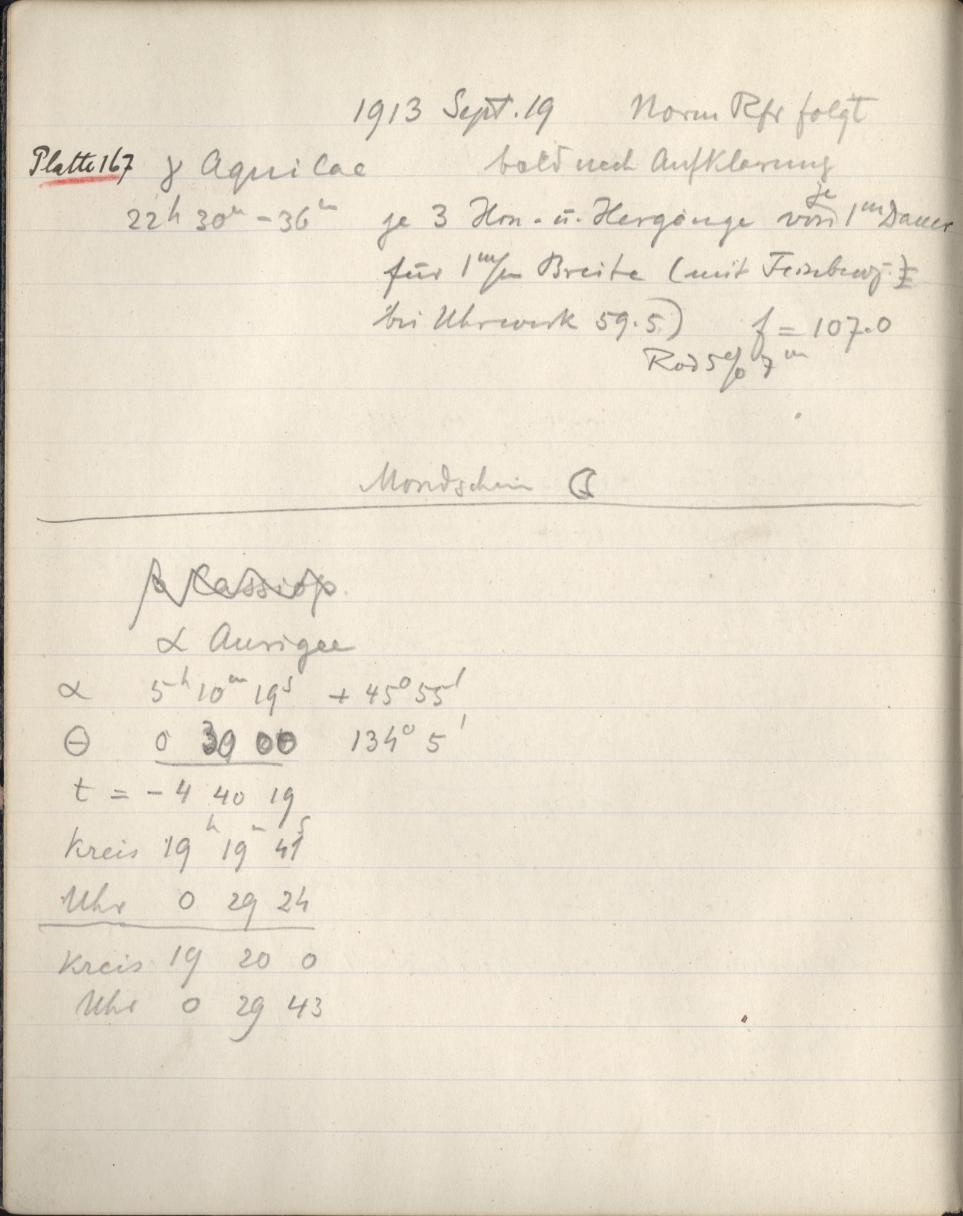 1913 Sept. 19 Norm Rfr folgt
Platte 167 γ Aquilae bald nach Aufklarung
22h 30m - 36m je 3 Hin- u. Hergänge von je 1m Dauer
für 1 m/m Breite (mit Feinbewg.
bei Uhrwerk 59.5) f = 107.0
Rod 5% 7m
Mondschein
β Cassiop.
α Aurigae
α 5h 10m 19s + 45° 55'
Θ 0 30 00 134° 5'
t = - 4 40 19
Kreis 19h 19m 41s
Uhr 0 29 24
Kreis 19 20 0
Uhr 0 29 43